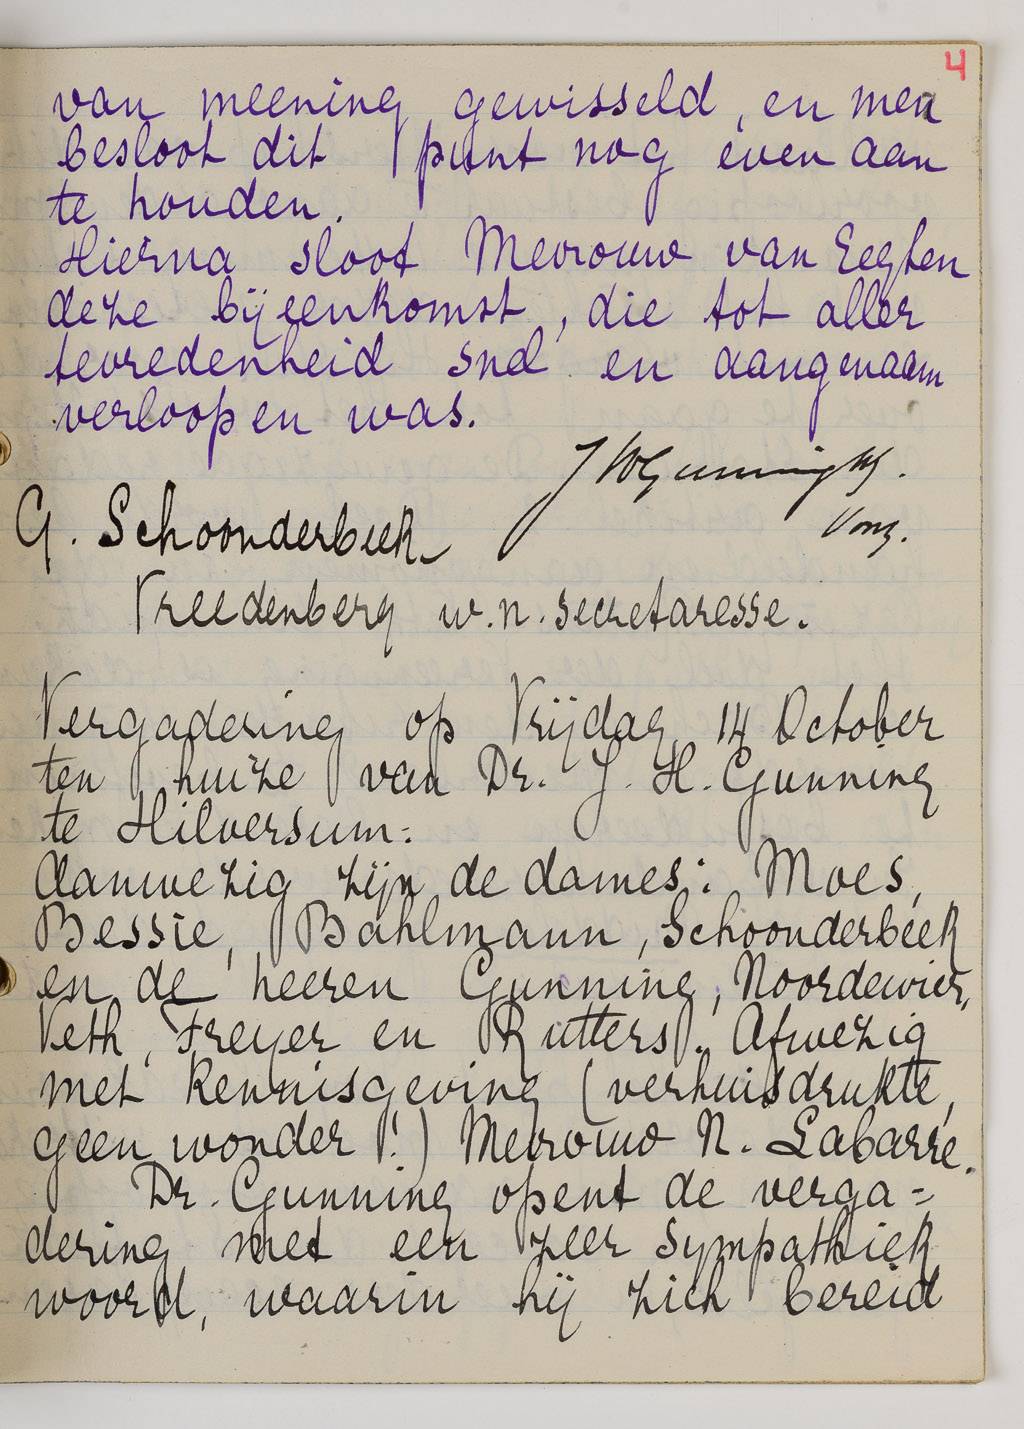 4
van meening gewisseld, en men
besloot dit punt nog even aan
te houden.
Hierna sloot Mevrouw van Eeghen
deze bijeenkomst, die tot aller
tevredenheid snel en aangenaam
verloopen was.
J H Gunning
Vorz.
G. Schoonderbeek
Vreedenberg w.n. secretaresse.
Vergadering op Vrijdag 14 October
ten huize van Dr. J. H. Gunning
te Hilversum.
Aanwezig zijn de dames: Moes,
Bessie, Bahlmann, Schoonderbeek
en de heeren Gunning, Noordewier,
Veth, Freyer en Rutters. Afwezig
met kennisgeving (verhuisdrukte,
geen wonder!) Mevrouw N. Labarre.
Dr. Gunning opent de verga=
dering met een zeer sympathiek
woord, waarin hij zich bereid